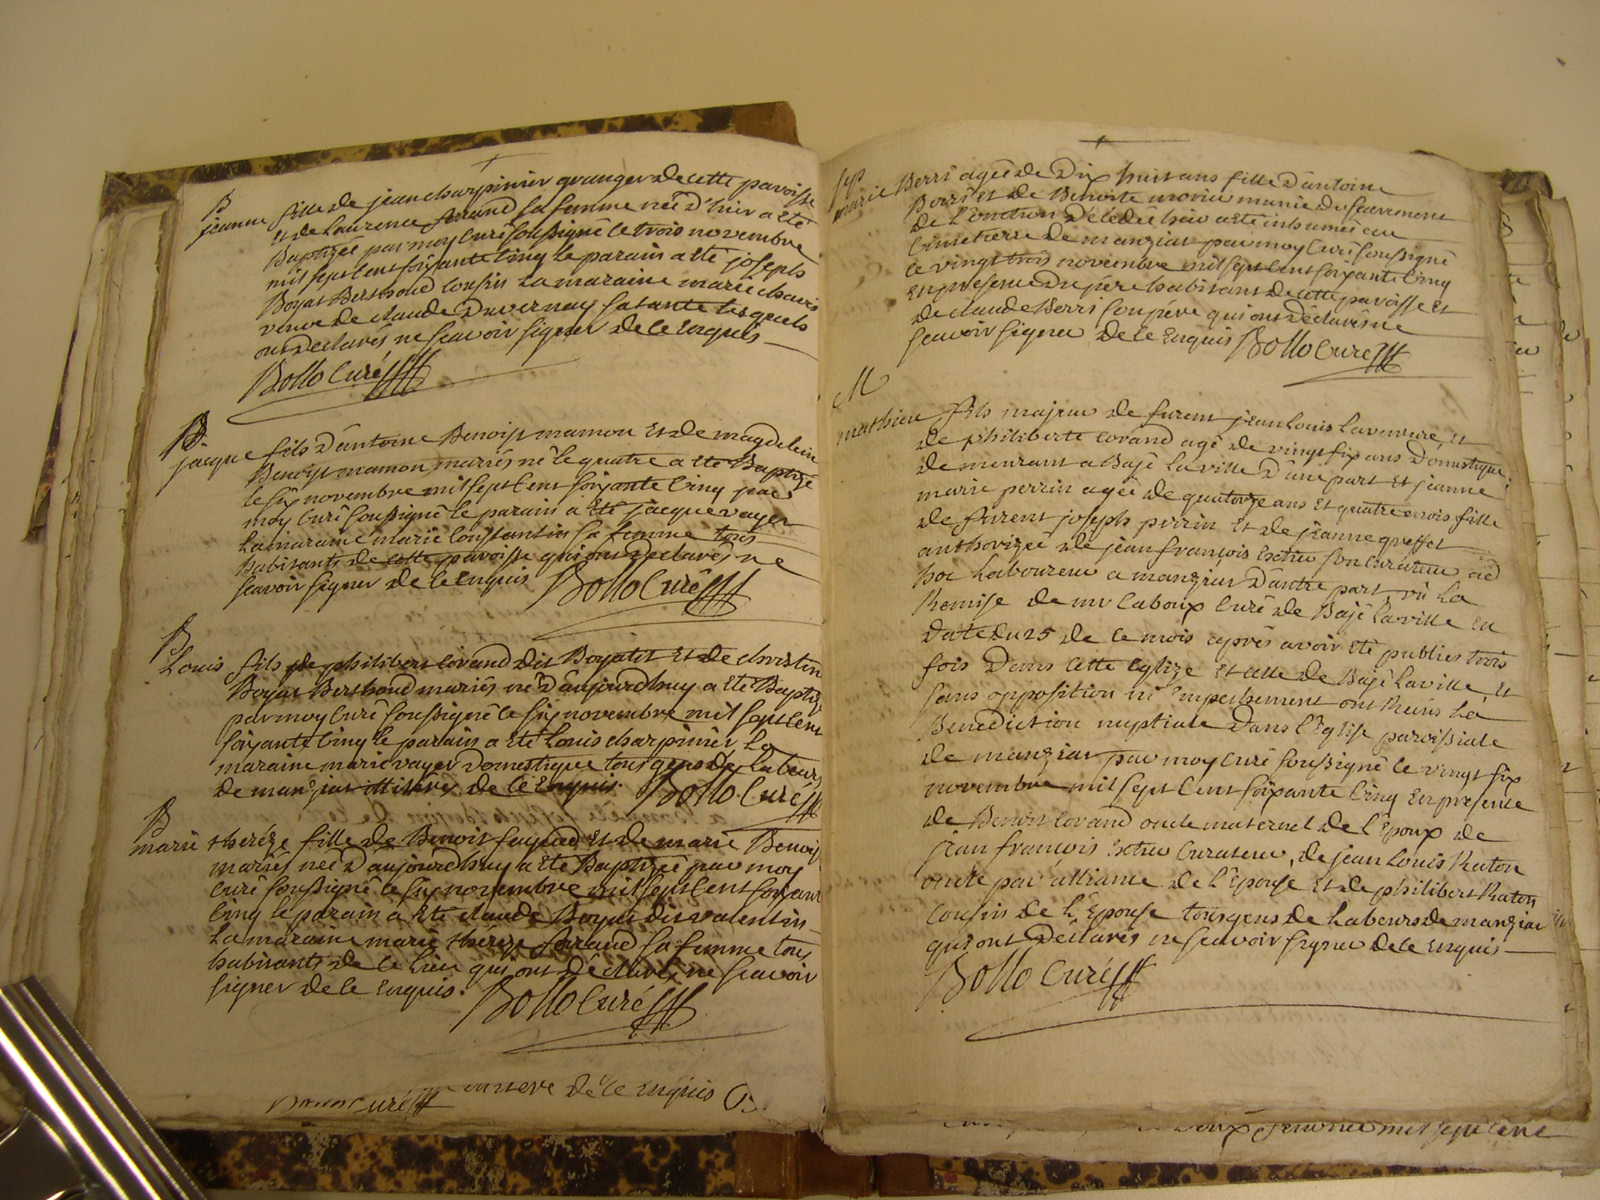 B
jeanne fille de jean charpinier granger de cette paroisse
et de Laurence feraud sa femme née d'hier a eté
Baptizée par moy Curé soussigné le trois novembre
mil sept cent soixante Cinq le parain a eté joseph
Boyat Berthoud cousin La maraine marie
veuve de claude Duvernay sa tante lesquels
ont déclarés ne scavoir signer de ce Enquis
Bollo Curé
B
jacque fils d'antoine Benoist mamon Et de magdelein
Benoist mamon mariés né le quatre a eté Baptizé
le six novembre mil sept cent soixante Cinq par
moy Curé soussigné le parain a Eté jacque vayer
La maraine marie Constantin sa femme tous
habitants de cette paroisse qui ont déclarés ne
scavoir signer de ce Enquis Bollo Curé
B
Louis fils de philibert Corand dit Boyatet Et de christin
Boyat Berthoud mariés né d'aujourd'huy a Eté Baptizé
par moy Curé soussigné le six novembre mil sept cent
soixante Cinq le parain a Eté Louis charpinier La
maraine marie vayer domestique tous gens de Labeurs
de manziat illitérés de ce Enquis. Bollo Curé
B
marie therèze fille de Benoist fayard Et de marie Benoist
mariés née d'aujourd'huy a Eté Baptizée par moy
Curé soussigné le six novembre mil sept cent soixante
Cinq le parain a Eté claude Boyat dit valentin
La maraine marie thérèze feraud sa femme tous
habitants de ce Lieu qui ont déclarés ne scavoir
signer de ce Enquis. Bollo Curé
Curé de ce Enquis
sep
marie Berri agée de Dix huit ans fille d'antoine
Berri et de Benoite morin munie du sacrement
de L'onction décédée hier a eté inhumée au
Cimetiere de manziat par moy Curé soussigné
le vingt trois novembre mil sept cent soixante Cinq
En présence du pere habitant de cette paroisse et
de claude Berri son père qui ont déclarés ne
scavoir signer de ce Enquis Bollo Curé
M
mathieu fils majeur de furent jean Louis Laventure, et
de philiberte Corand agé de vingt six ans Domestique
demeurant a Bagé La ville d'une part et jeanne
marie perrin agée de quatorze ans Et quatre mois fille
de furent joseph perrin Et de jeanne greffet
authorizée de jean françois son Curateur ad
hoc Laboureur a manziat d'autre part vû La
Remise de mr Caboux Curé de Bagé La ville en
Date du 25 de ce mois après avoir eté publiés trois
fois Dans cette Eglize Et celle de Bagé La ville Et
sans opposition ni Empechement ont Reçus La
Bénédiction nuptiale Dans l'Eglise paroissiale
de manziat par moy Curé soussigné le vingt six
novembre mil sept Cent soixante Cinq En présence
de Benoist Corand oncle maternel de l'Epoux de
jean françois Curateur, de jean Louis Raton
oncle par alliance de L'Epouse Et de philibert Raton
Cousin de L'Epouse tous gens de Labeurs de manziat
qui ont Déclarés ne scavoir signer de ce Enquis
Bollo Curé
mil sept cent